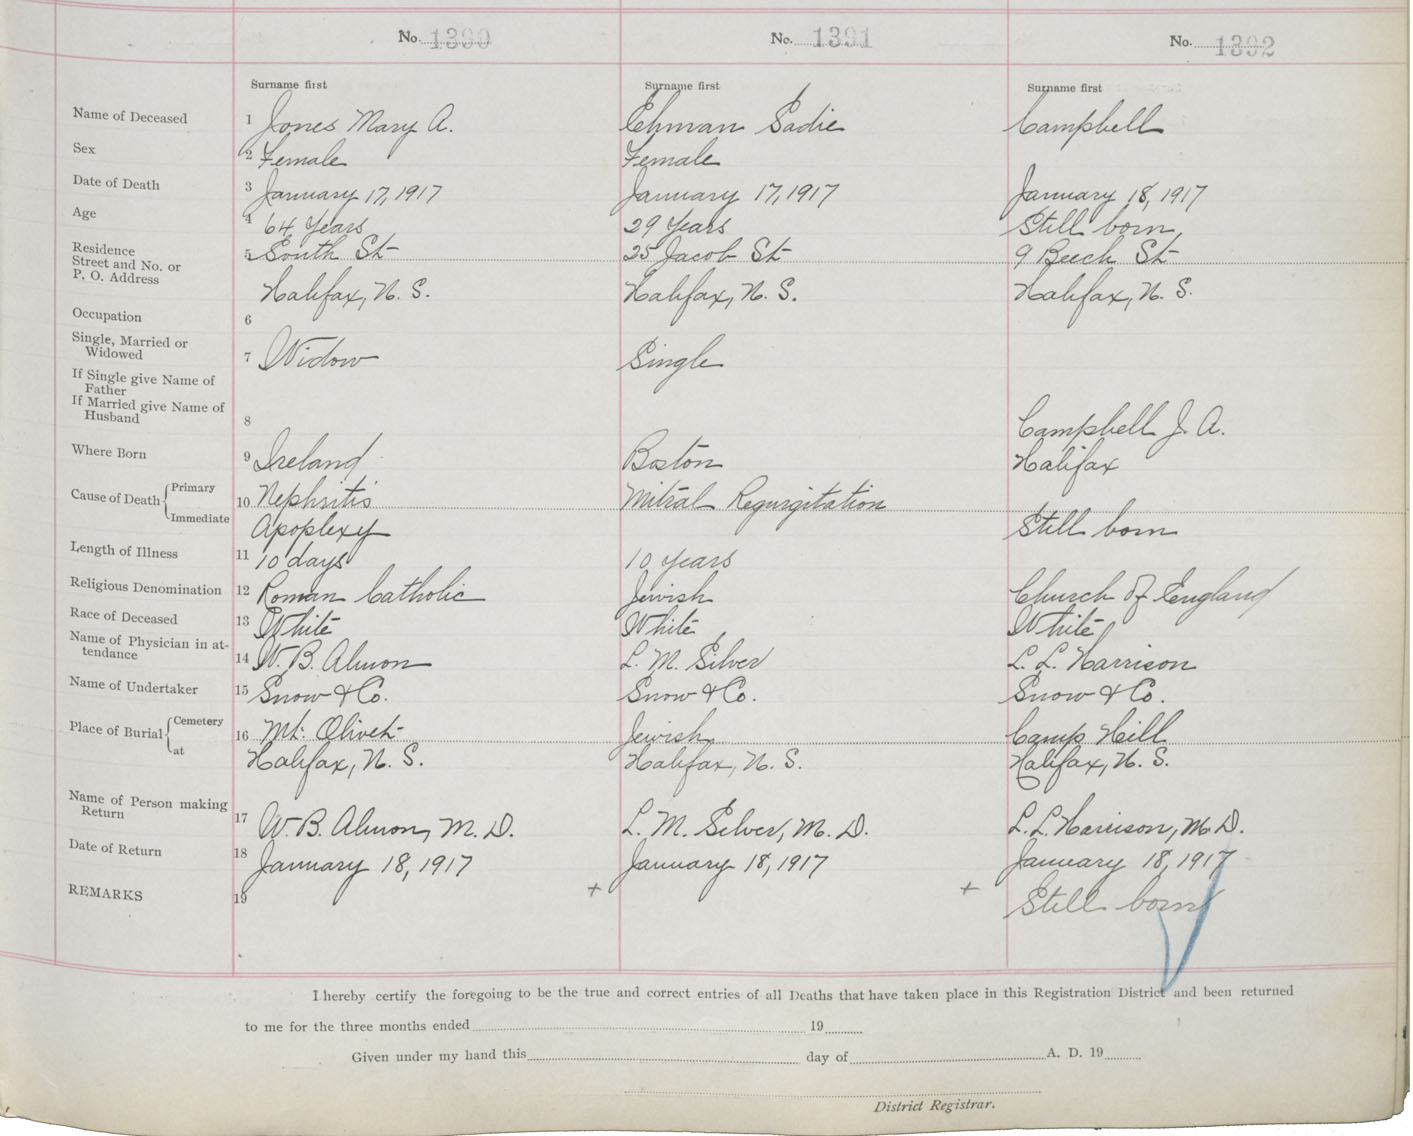 No. 1390 No. 1391 No. 1392
Surname first Surname first Surname first
Name of Deceased 1 Jones Mary A. Ehman Sadie Campbell
Sex 2 Female Female
Date of Death 3 January 17, 1917 January 17, 1917 January 18, 1917
Age 4 64 Years 29 Years Still born
Residence
Street and No. or 5 South St 25 Jacob St 9 Beech St
P. O. Address
Halifax, N. S. Halifax, N. S. Halifax, N. S.
Occupation 6
Single, Married or
Widowed 7 Widow Single
If Single give Name of
Father
If Married give Name of
Husband 8 Campbell J. A.
Where Born 9 Ireland Boston Halifax
Cause of Death Primary 10 Nephritis Mitral Regurgitation
Immediate Apoplexy Still born
Length of Illness 11 10 days 10 years
Religious Denomination 12 Roman Catholic Jewish Church of England
Race of Deceased 13 White White White
Name of Physician in at-
tendance 14 W. B. Almon L. M. Silver L. L. Harrison
Name of Undertaker 15 Snow & Co. Snow & Co. Snow & Co.
Place of Burial Cemetery 16 Mt. Olivet Jewish Camp Hill
at Halifax, N. S. Halifax, N. S. Halifax, N. S.
Name of Person making
Return 17 W. B. Almon, M. D. L. M. Silver, M. D. L. L. Harrison, M. D.
Date of Return 18 January 18, 1917 January 18, 1917 January 18, 1917
REMARKS 19 + + Still born
I hereby certify the foregoing to be the true and correct entries of all Deaths that have taken place in this Registration District and been returned
to me for the three months ended 19
Given under my hand this day of A. D. 19
District Registrar.